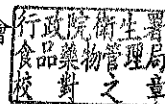 會
行政院衛生署
食品藥物管理局
校對之章